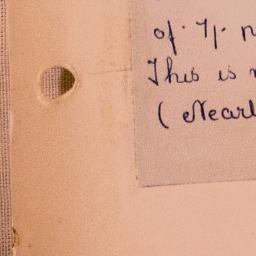 of
This is
(Nearl